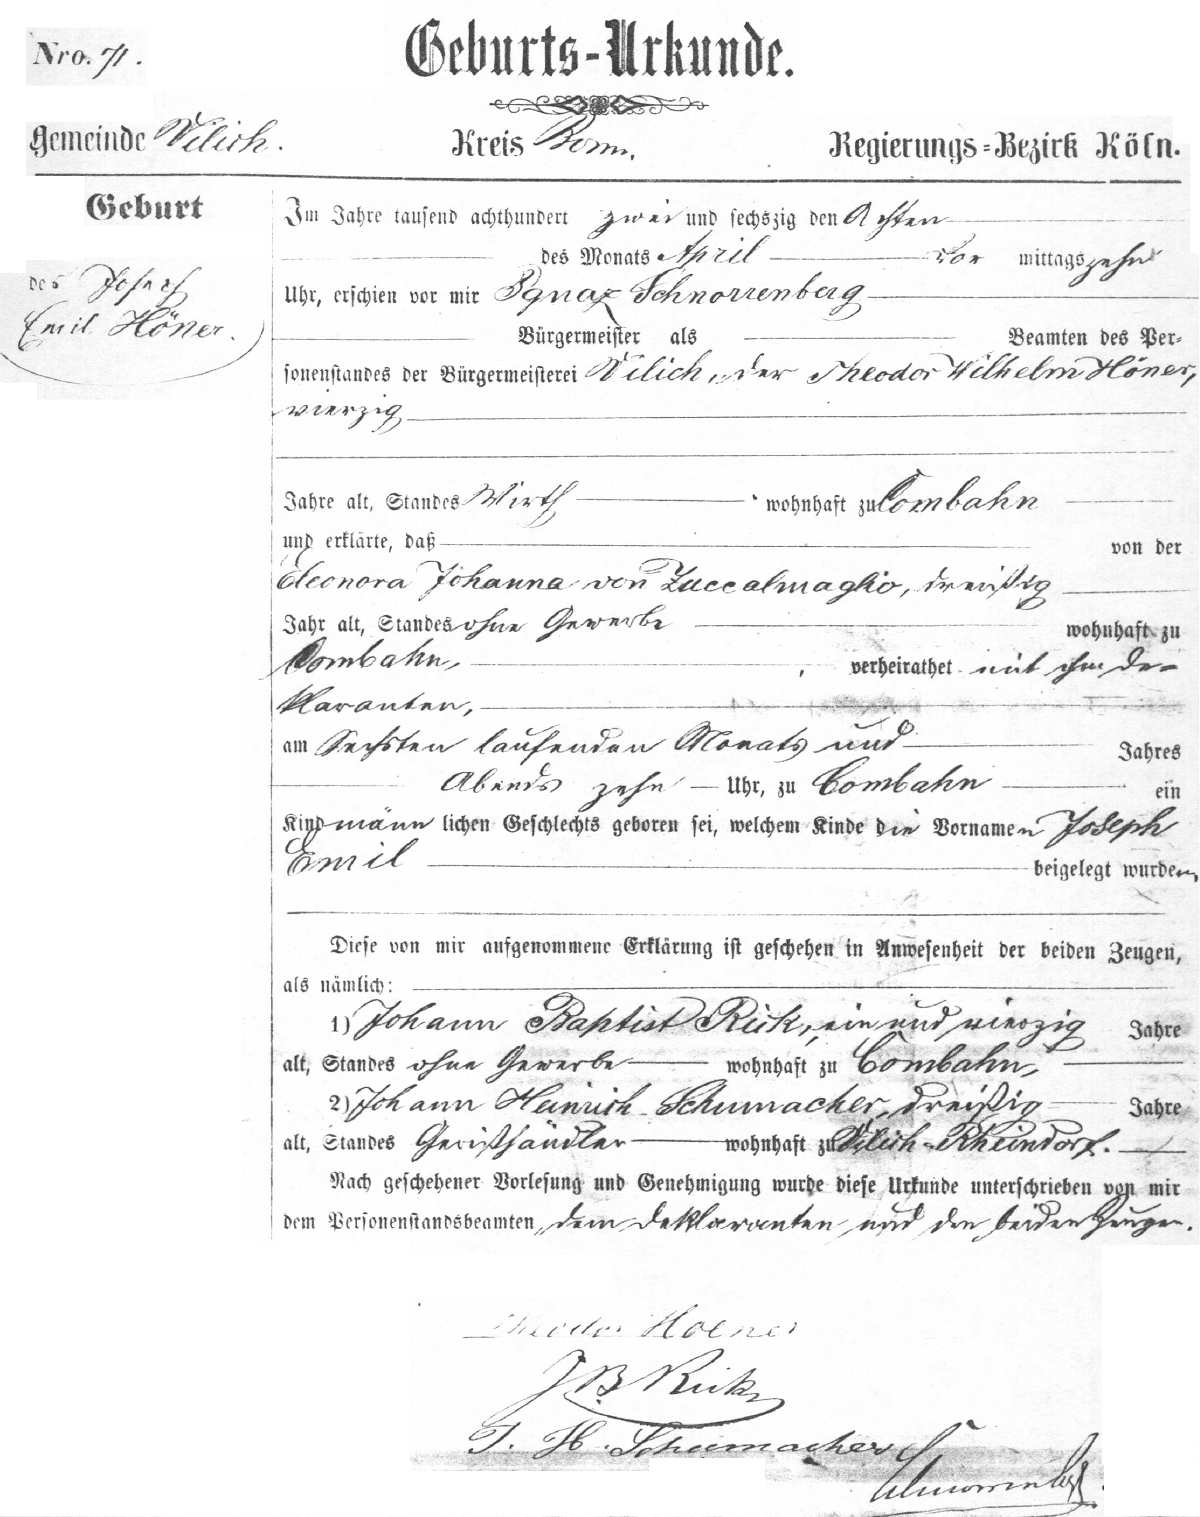 Nro. 71.
Geburts-Urkunde.
Gemeinde Vilich. Kreis Bonn. Regierungs-Bezirk Köln.
Geburt
des Joseph
Emil Höner.
Im Jahre tausend achthundert zwei und sechszig den Achten
des Monats April Vor mittags zehn
Uhr, erschien vor mir Ignaz Schnorrenberg
Bürgermeister als Beamten des Per-
sonenstandes der Bürgermeisterei Vilich, der Theodor Wilhelm Höner,
vierzig
Jahre alt, Standes Wirth wohnhaft zu Combahn
und erklärte, daß von der
Eleonora Johanna von Zuccalmaglio, dreißig
Jahr alt, Standes ohne Gewerbe wohnhaft zu
Combahn, verheirathet mit ihm De-
klaranten,
am Sechsten laufenden Monats und Jahres
Abends zehn Uhr, zu Combahn ein
Kind männ lichen Geschlechts geboren sei, welchem Kinde die Vornamen Joseph
Emil beigelegt wurden,
Diese von mir aufgenommene Erklärung ist geschehen in Anwesenheit der beiden Zeugen,
als nämlich:
1) Johann Baptist Rick, ein und vierzig Jahre
alt, Standes ohne Gewerbe wohnhaft zu Combahn,
2) Johann Heinrich Schumacher, dreißig Jahre
alt, Standes wohnhaft zu Vilich-Rheindorf.
Nach geschehener Vorlesung und Genehmigung wurde diese Urkunde unterschrieben von mir
dem Personenstandsbeamten, dem Deklaranten und den beiden Zeugen.
Theodor Hoener
J B Rick
J. H. Schumacher
Schnorrenberg